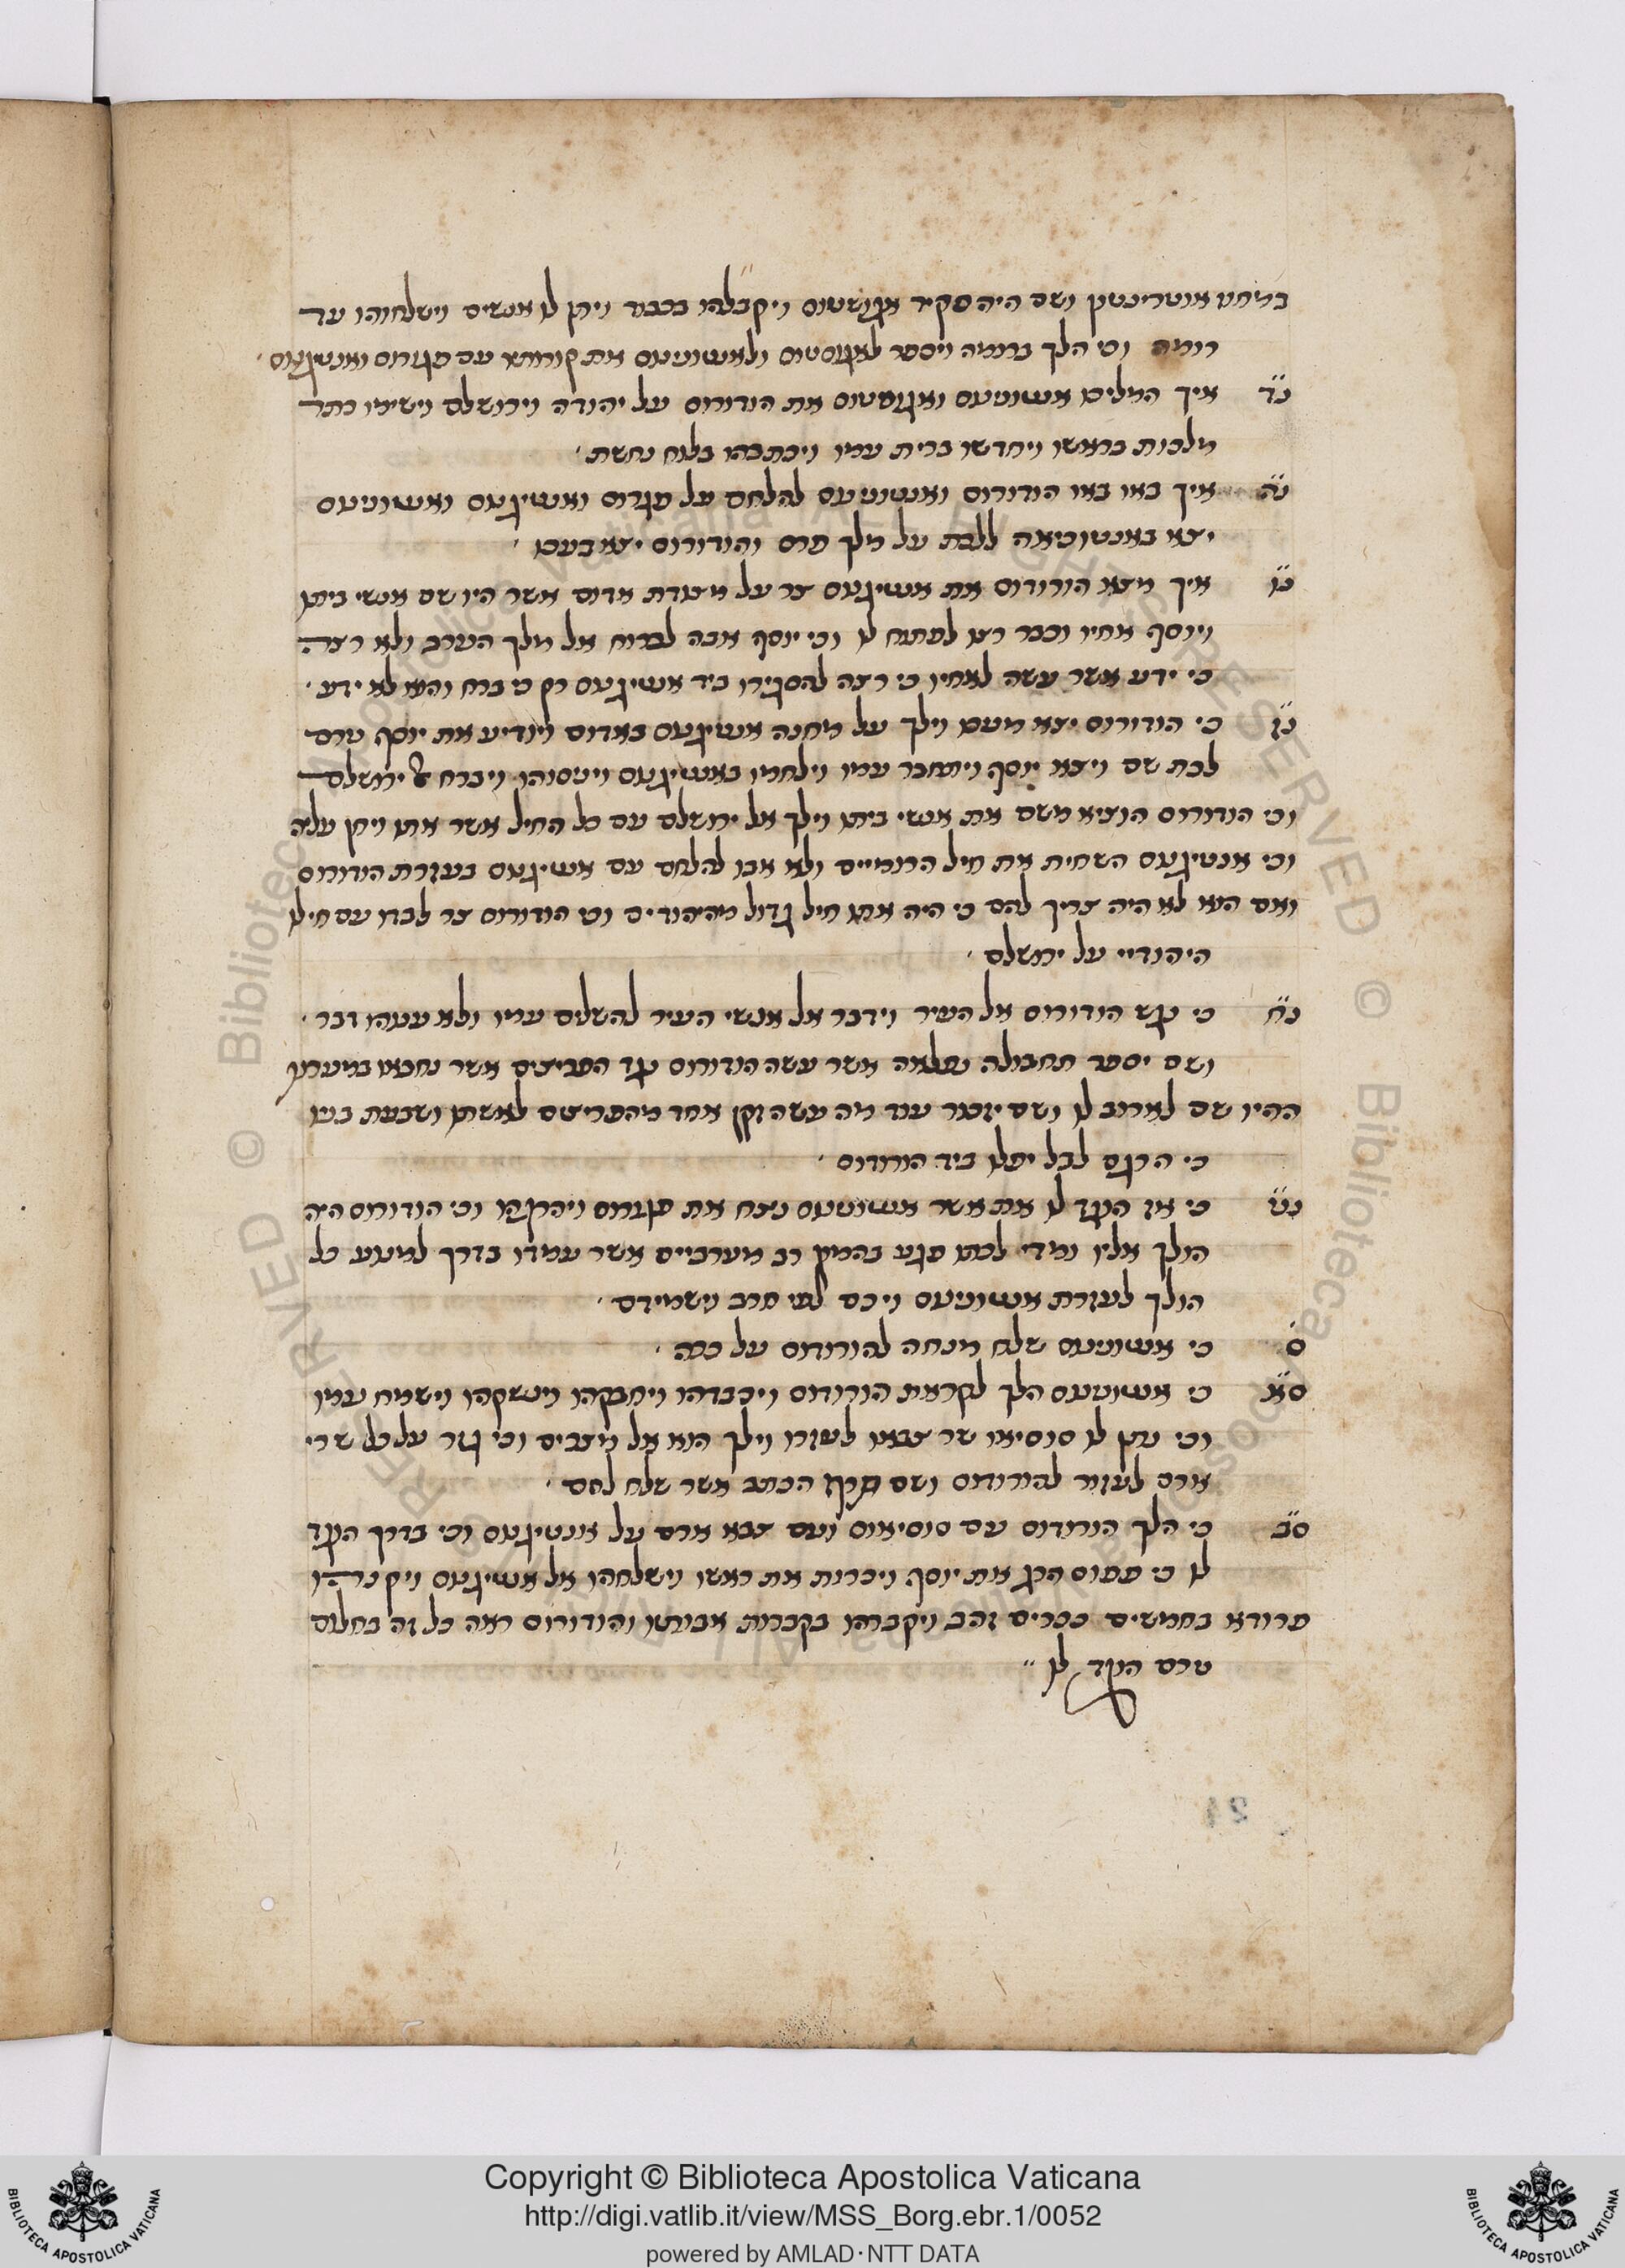 ושם היה אגושטוס ויקבלהו בכבוד ויתן לו אנשים וישלחוהו עד
רומה וכי הלך ברומה ויספר לאגוסטוס ולאנטוניאוס את עם פגורוס ואנטיגנוס
נד איך המליכו אנטוניאוס ואגוסטוס את הורודוס על יהודה וירושלם וישימו כתר
מלכות בראשו ויחדשו ברית עמו ויכתבהו בלוח נחשת
נה איך באו באו הורודוס ואנטוניאוס להלחם על פגרוס ואנטיגנוס ואנטוניאוס
יצא באנטוכיאה ללכת על מלך פרס והורודוס יצא בעכו
נו איך מצא הורודוס את אנטיגנוס צר על מצודת אדום אשר היו שם אנשי ביתו
ויוסף אחיו וכבר רצו לפתוח לו וכי יוסף אבה לברוח אל מלך הערב ולא רצה
כי ידע אשר עשה לאחיו כי רצה להסגירו ביד אנטיגנוס רק כי ברח והוא לא ידע
נז כי הורודוס יצא מעכו וילך על מחנה אנטיגנוס באדום ויודיע את יוסף טרם
לכת שם ויצא יוסף ויתחבר עמו וילחמו באנטיגנוס וינוסוהו ויברח אל ירושלם
וכי הורודוס הוציא משם את אנשי ביתו וילך אל ירושלם עם כל החיל אשר אתו ויחן עליה
וכי אנטיגנוס השחית את חיל הרומיים ולא אבו להלחם עם אנטיגנוס בעזרת הורודוס
ואם הוא לא היה צריך להם כי היה אתו חיל גדול מהיהודים וכי הורודוס צר לבדו עם חילו
היהודיי על ירושלם
נח כי נגש הורודוס אל העיר וידבר אל אנשי העיר להשלים עמו ולא ענוהו דבר
ושם יספר תחבולה נפלאה אשר עשה הורודוס נגד הפריצים אשר נחבאו במערות
ההיו שם לארוב לו ושם יזכור עוד מה עשה זקן אחד מהפריצים לאשתו ושבעת בניו
כי הרגם לבל יפלו ביד הורודוס
נט כי אז הוגד לו את אשר אנטוניאוס נצח את פגורוס ויהרגהו וכי הורודוס היה
הולך אליו ומדי לכתו פגע בהמון רב מערביים אשר עמדו בדרך למנוע כל
הולך לעזרת אנטוניאוס ויכם לפי חרב וישמידם
ס כי אנטוניאוס שלח מנחה להורודוס על ככה
סא כי אנטוניאוס הלך לקראת הורודוס ויכבדהו ויחבקהו וינשקהו וישמח עמו
וכי נתן לו סוסיאו שר צבאו לעזרו וילך הוא אל מצרים וכי גזר על כל שרי
ארם לעזור להורודוס ושם תוכן הכתב אשר שלח להם
סב כי הלך הורודוס עם סוסיאוס ועם צבא ארם על אנטיגנוס וכי בדרך הוגד
לו כי פפוס הרג את יוסף ויכרות את ראשו וישלחהו אל אנטיגנוס ויקנהו
פרודא בחמשים ככרים זהב ויקברהו בקברות אבותיו והורודוס ראה כל זה בחלום
טרם הוגד לו
24
Copyright © Biblioteca Apostolica Vaticana
http://digi.vatlib.it/view/MSS_Borg.ebr.1/0052
powered by AMLAD·NTT DATA